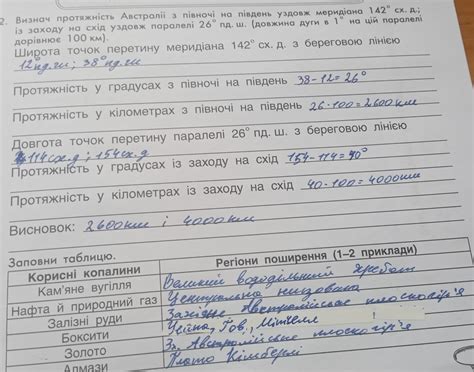 2. Визнач протяжність Австралії з півночі на південь уздовж меридіана 142° сх. д.;
із заходу на схід уздовж паралелі 26° пд. ш. (довжина дуги в 1° на цій паралелі
дорівнює 100 км).
Широта точок перетину меридіана 142° сх. д. з береговою лінією
12°пд.ш; 38°пд.ш
Протяжність у градусах з півночі на південь 38-12=26°
Протяжність у кілометрах з півночі на південь 26·100=2600км
Довгота точок перетину паралелі 26° пд. ш. з береговою лінією
114сх.д; 154сх.д
Протяжність у градусах із заходу на схід 154-114=40°
Протяжність у кілометрах із заходу на схід 40·100=4000км
Висновок: 2600км і 4000км
Заповни таблицю.
Корисні копалини Регіони поширення (1–2 приклади)
Кам'яне вугілля Великий вододільний хребет
Нафта й природний газ Центральна низовина
Залізні руди Західне Австралійське плоскогір'я
Боксити Уейпа, Гов, Мітчелл
Золото Зх. Австралійське плоскогір'я
Алмази Плато Кімберлі